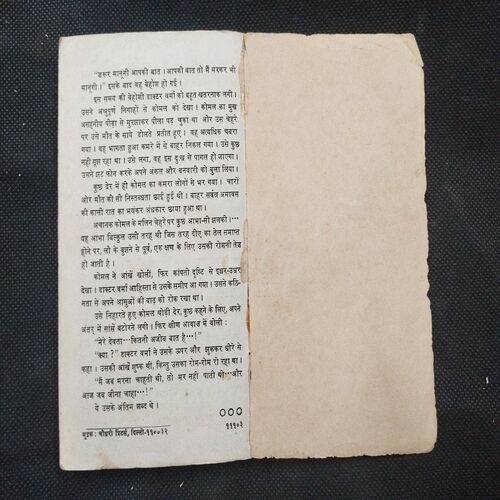 "जरूर मानूंगी आपकी बात । आपकी बात तो मैं मरकर भी
मानूंगी ।" इसके बाद वह बेहोश हो गई ।
इस समय की बेहोशी डाक्टर वर्मा को बहुत खतरनाक लगी ।
उसने अश्रुपूर्ण निगाहों से कोमल को देखा । कोमल का मुख
असहनीय पीड़ा से मुरझाकर पीला पड़ चुका था और उस चेहरे
पर उसे मौत के साये डोलते प्रतीत हुए । वह अत्यधिक घबरा
गया । वह भागता हुआ कमरे में से बाहर निकल गया । उसे कुछ
नहीं सूझ रहा था । उसे लगा, वह इस दुःख से पागल हो जाएगा ।
उसने झट फोन करके अपने अंकल और बनवारी को बुला लिया ।
कुछ देर में ही कोमल का कमरा लोगों से भर गया । चारों
ओर मौत की सी निस्तब्धता छाई हुई थी । बाहर सर्वत्र अमावस
की काली रात का भयंकर अंधकार छाया हुआ था ।
अचानक कोमल के मलिन चेहरे पर कुछ आभा-सी झलकी ।···
यह आभा बिल्कुल उसी तरह थी जिस तरह दीए का तेल समाप्त
होने पर, लौ के बुझने से पूर्व, एक क्षण के लिए उसकी रोशनी तेज
हो जाती है ।
कोमल ने आँखें खोलीं, फिर कांपती दृष्टि से इधर-उधर
देखा । डाक्टर वर्मा आहिस्ता से उसके समीप आ गया । उसने कठि-
नता से अपने आंसुओं की बाढ़ को रोक रखा था ।
उसे निहारते हुए कोमल थोड़ी देर, कुछ कहने के लिए, अपने
अंतर् में सांसें बटोरने लगी । फिर क्षीण आवाज़ में बोली :
"मेरे देवता···कितनी अजीब बात है···!"
"क्या ?" डाक्टर वर्मा ने उसके ऊपर और झुककर धीरे से
कहा । उसकी आँखें शुष्क थीं, किन्तु उसका रोम-रोम रो रहा था ।
"मैं जब मरना चाहती थी, तो मर नहीं पाती थी···और
आज जब जीना चाहा···!"
ये उसके अंतिम शब्द थे ।
०००
मुद्रक : चौधरी प्रिंटर्स, दिल्ली-११००३२ १११०३